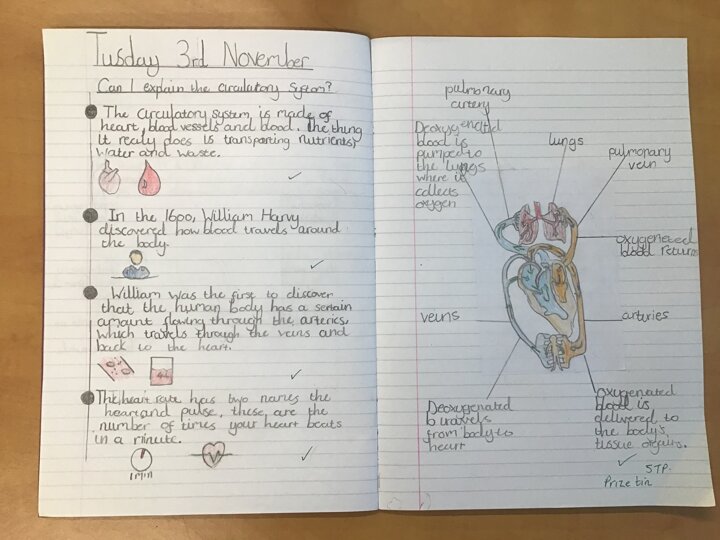 Tusday 3rd November
Can I explain the circulatory system?
The circulatory system is made of
heart, blood vessels and blood. The thing
it really does is transporting nutrients,
water and waste.
In the 1600, William Harvy
discovered how blood travels around
the body.
William was the first to discover
that the human body has a sertain
amount flowing through the arteries,
which travels through the veins and
back to the heart.
The heart rate has two names the
heart and pulse, these are the
number of times your heart beats
in a minute.
1 min
pulmonary
artery
Deoxygenated
blood is
pumped to
the lungs
where is
collects
oxygen
lungs
pulmonary
vein
oxygeneted
blood returns
veins
arteries
Deoxygenated
b travels
from body to
heart
oxygenated
blood is
delivered to
the body's
tissue organs.
5TP.
Prize bin